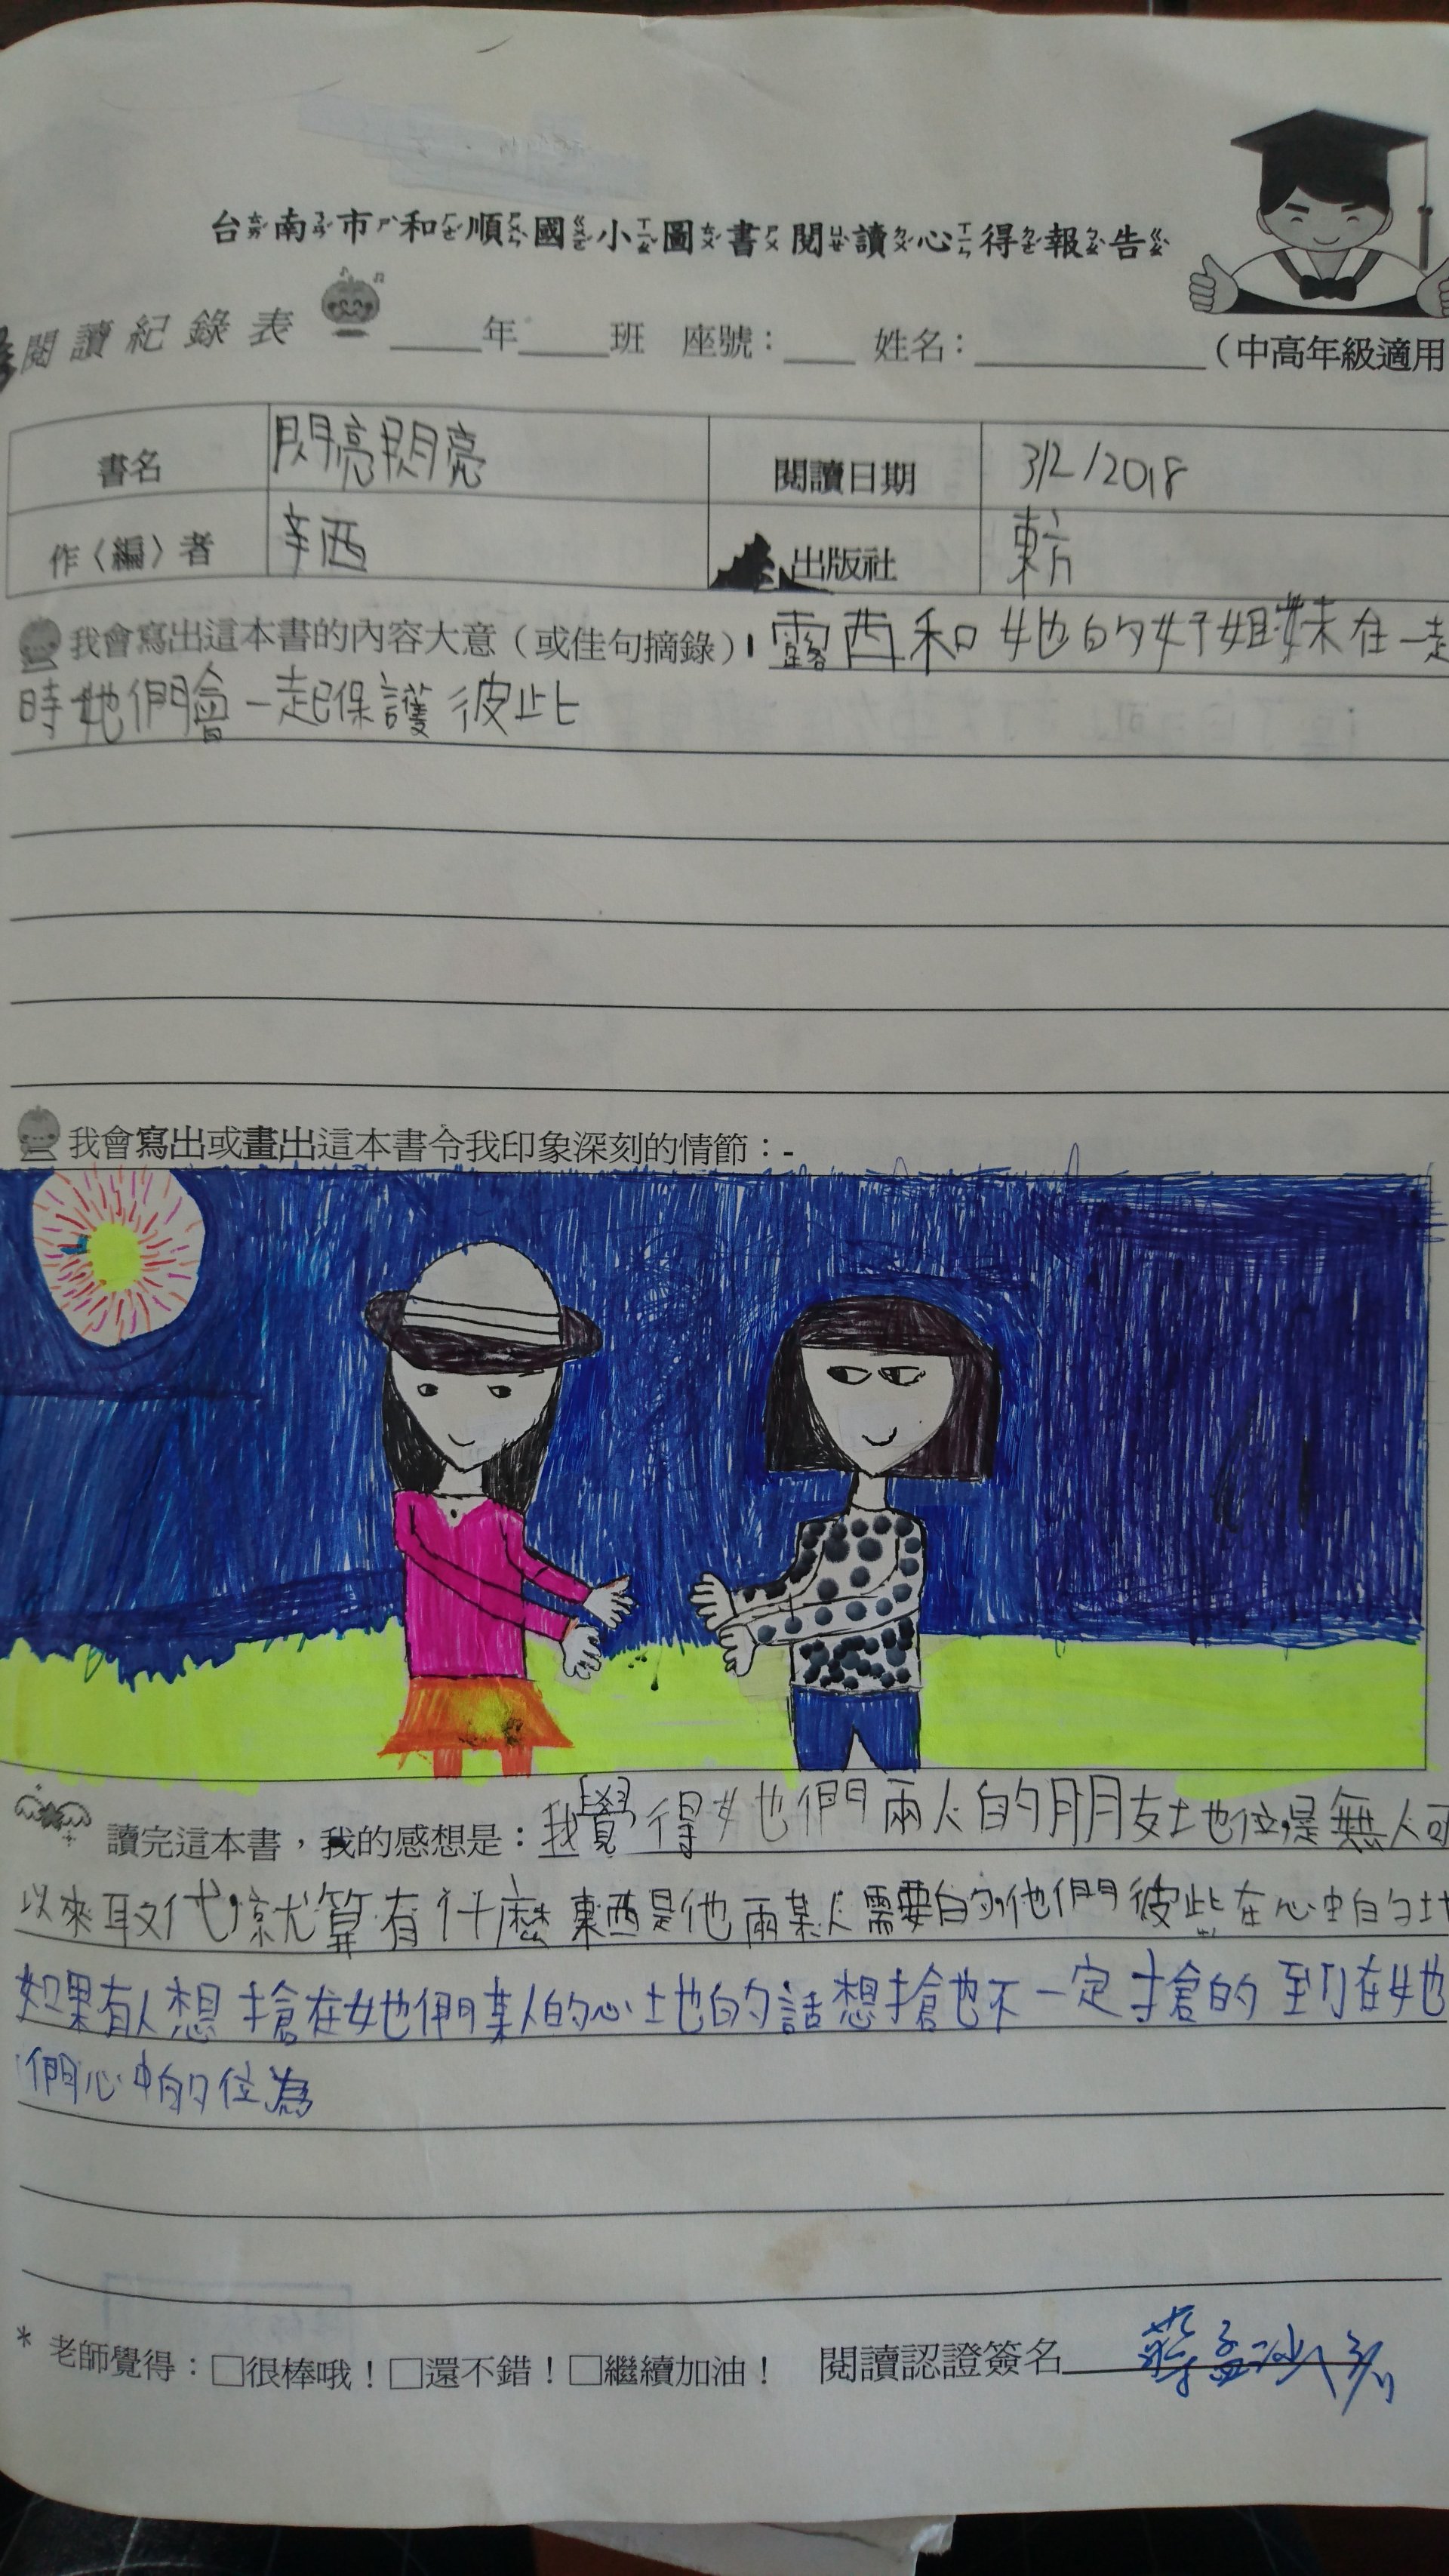 台南市和順國小圖書閱讀心得報告
閱讀紀錄表 ____年____班 座號：___ 姓名：__________（中高年級適用
書名 閃亮閃亮 閱讀日期 3/2/2018
作〈編〉者 辛西 出版社 東方
我會寫出這本書的內容大意（或佳句摘錄） 露西和她的好姐妹在一起
時她們會一起保護彼此
我會寫出或畫出這本書令我印象深刻的情節：-
讀完這本書，我的感想是：我覺得她們兩人的朋友地位是無人可
以來取代,就算有什麼東西是他兩某人需要的,他們彼此在心中的地
如果有人想搶在她們某人的心地的話想搶也不一定搶的到在她
們心中的位為
* 老師覺得：□很棒哦！□還不錯！□繼續加油！ 閱讀認證簽名